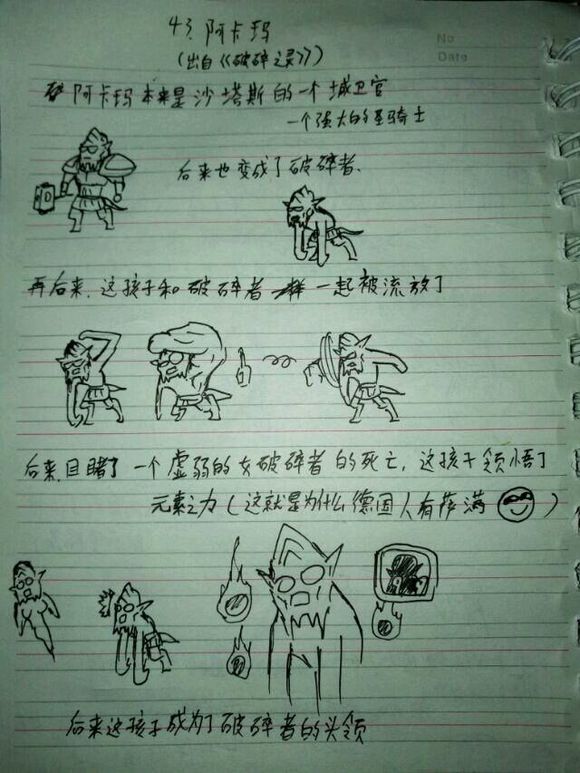 43. 阿卡玛
No
Date
(出自《破碎之灵》)
阿卡玛本来是沙塔斯的一个城卫官
一个强大的圣骑士
后来也变成了破碎者.
再后来,这孩子和破碎者一起被流放了
后来,目睹了一个虚弱的女破碎者的死亡,这孩子领悟了
元素之力(这就是为什么德国人有萨满)
后来这孩子成为了破碎者的头领